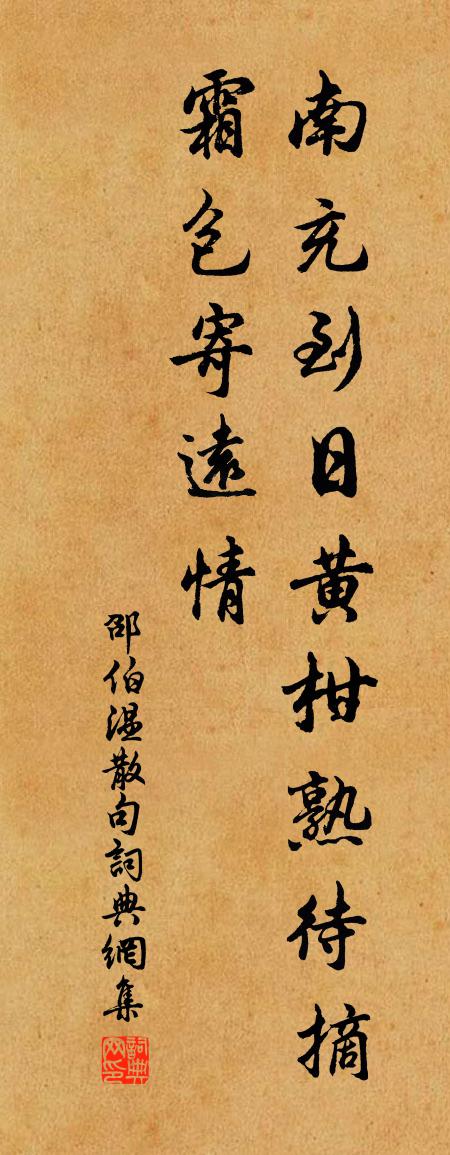 南充到日黄柑熟待摘
霜包寄遠情
邵伯温散句詞典網集
詞典
网印